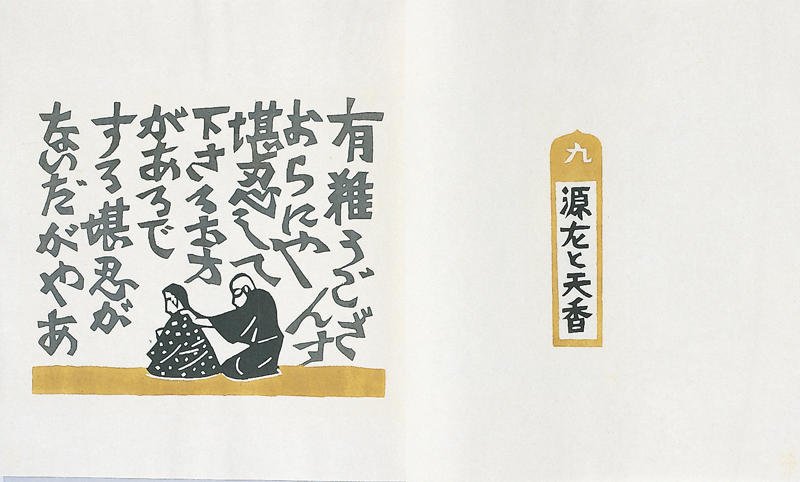 九
源左と天香
有難うござ
んす
おらにや
堪忍して
下さるお方
があるで
する堪忍が
ないだがやあ